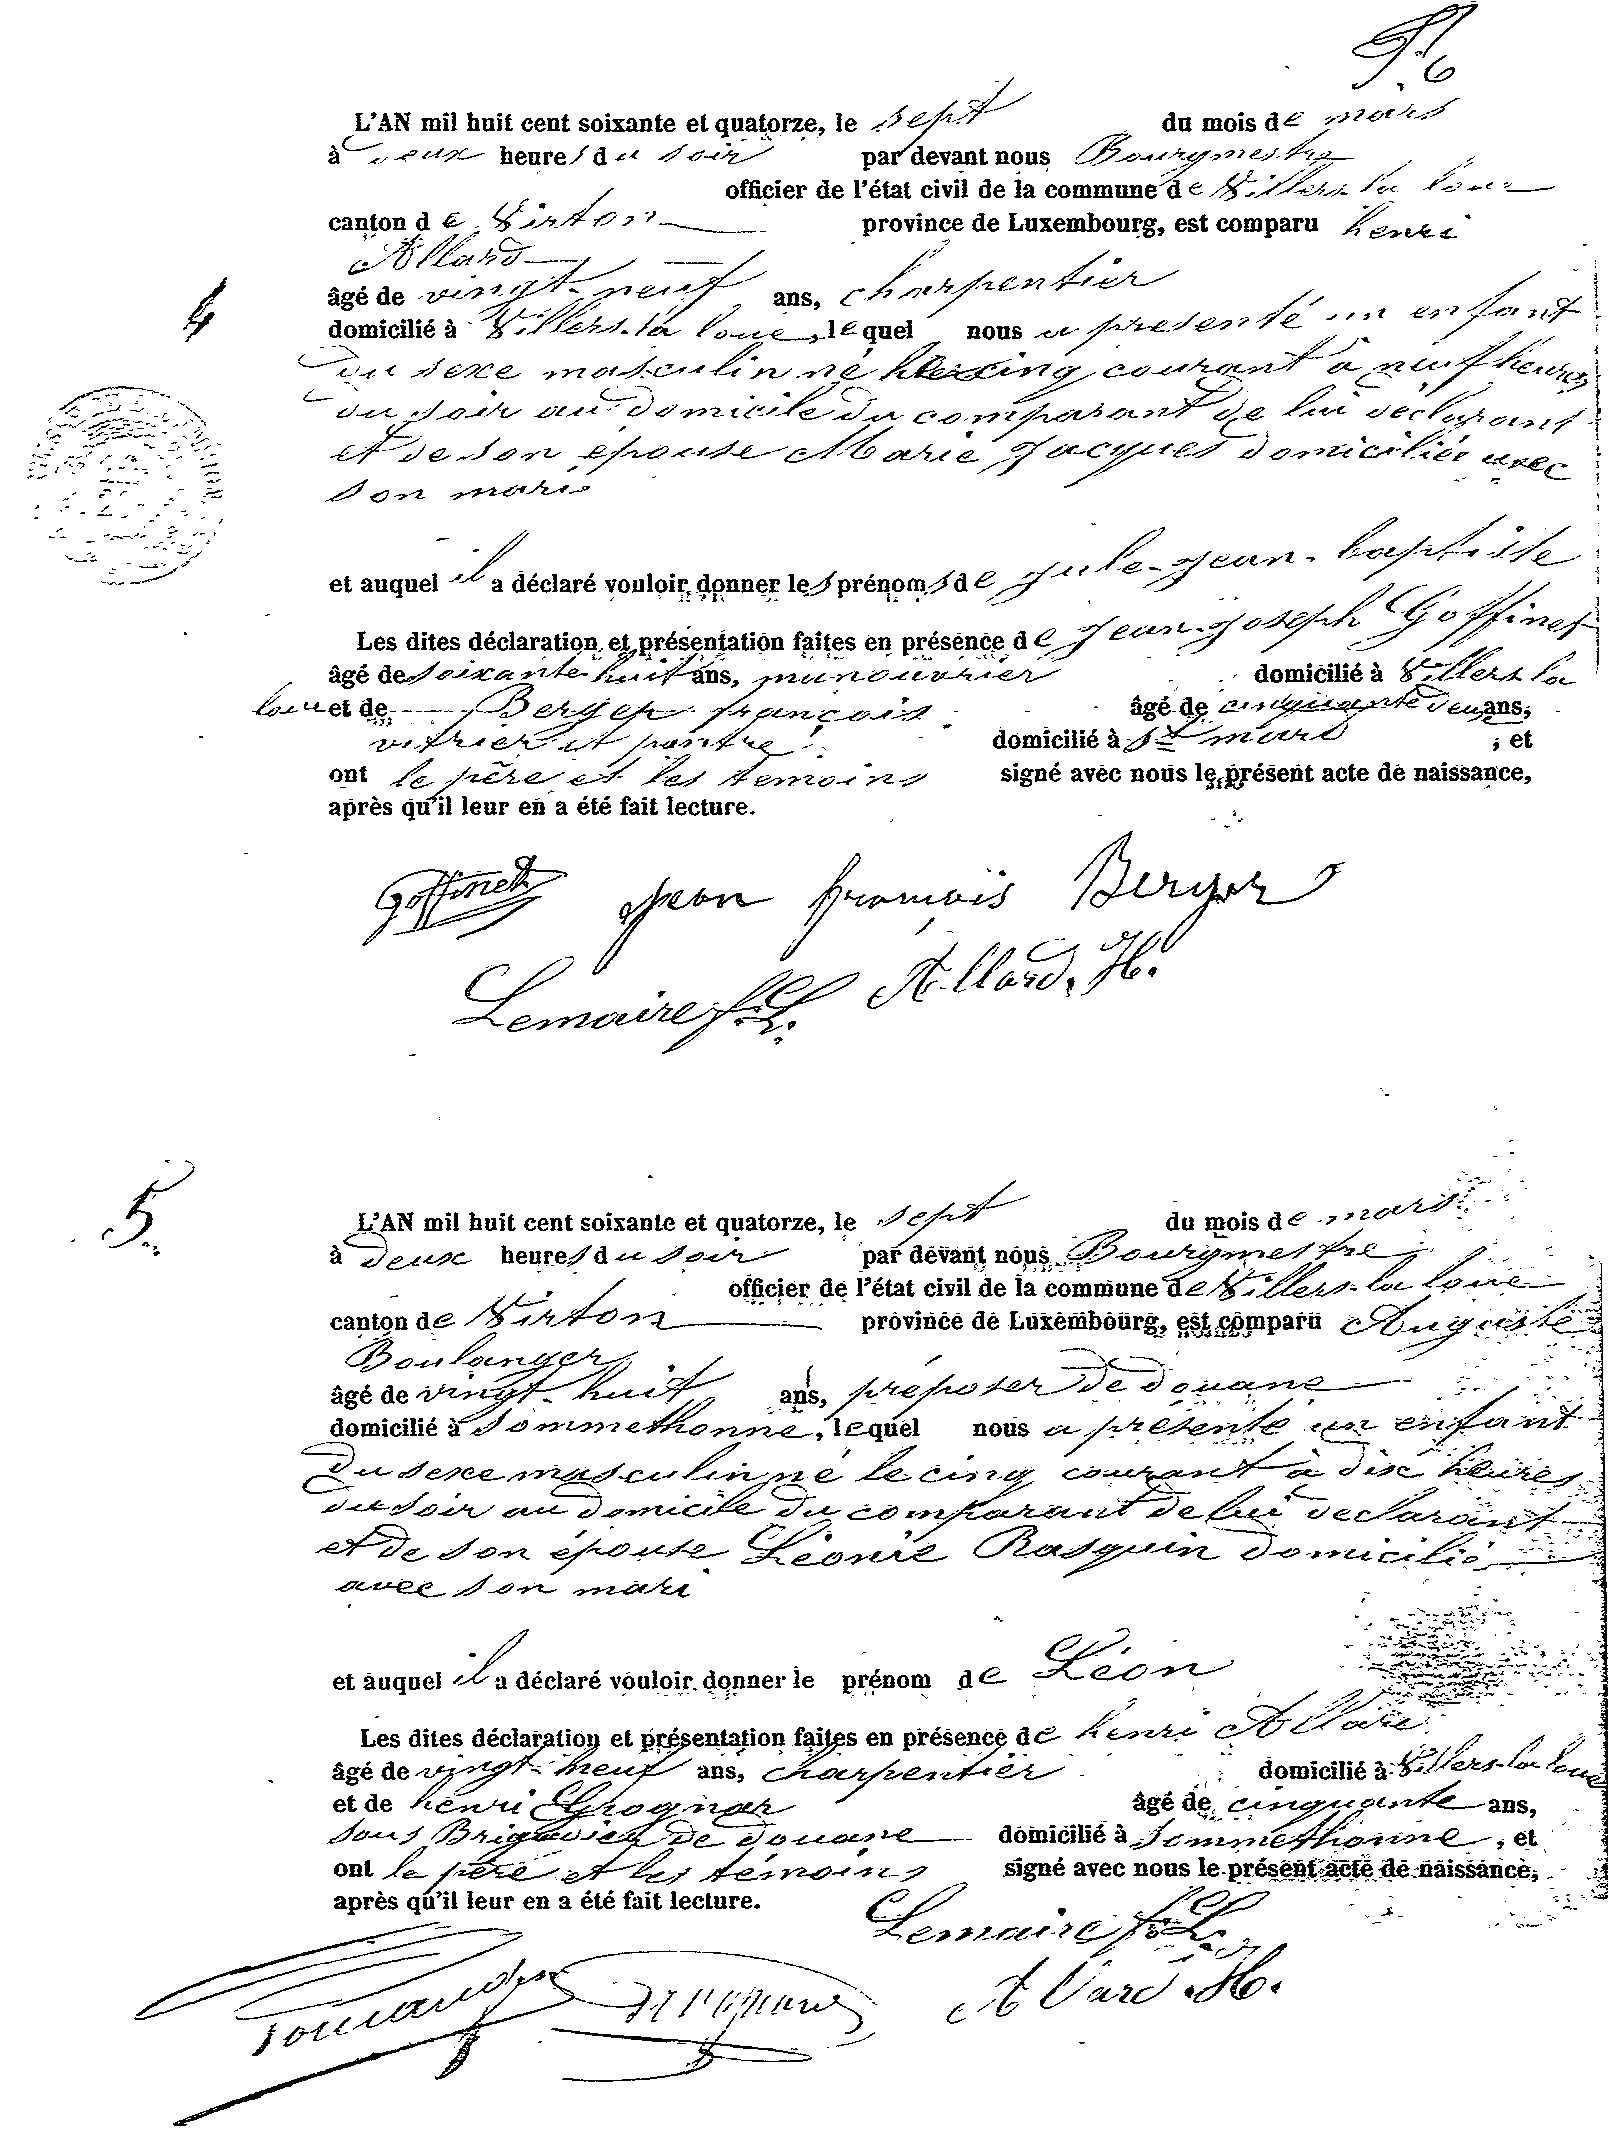 P. 6
L'AN mil huit cent soixante et quatorze, le sept du mois de mars
à deux heures du soir par devant nous Bourgmestre
officier de l'état civil de la commune de Villers-la loue
canton de Virton province de Luxembourg, est comparu henri
Allard
4
âgé de vingt-neuf ans, charpentier
domicilié à Villers-la loue, lequel nous a presenté un enfant
du sexe masculin né le cinq courant à neuf heures
du soir au domicile du comparant de lui déclarant
et de son épouse Marie Jacques domiciliée avec
son mari
et auquel il a déclaré vouloir donner les prénoms de Jule-Jean-baptiste
Les dites déclaration et présentation faites en présence de Jean-Joseph Goffinet
âgé de soixante huit ans, manouvrier domicilié à Villers-la
loue et de Berger françois âgé de cinquante deux ans,
vitrier et paintre domicilié à St mard ; et
ont le père et les temoins signé avec nous le présent acte de naissance,
après qu'il leur en a été fait lecture.
Goffinet Jean françois Berger
Lemaire f. L. Allard. H.
5
L'AN mil huit cent soixante et quatorze, le sept du mois de mars
à deux heures du soir par devant nous Bourgmestre
officier de l'état civil de la commune de Villers-la loue
canton de Virton province de Luxembourg, est comparu Auguste
Boulanger
âgé de vingt-huit ans, préposer de douane
domicilié à Sommethonne, lequel nous a présenté un enfant
du sexe masculin né le cinq courant à dix heures
du soir au domicile du comparant de lui declarant
et de son épouse Léonie Rasquin domicilié
avec son mari
et auquel il a déclaré vouloir donner le prénom de Léon
Les dites déclaration et présentation faites en présence de henri Allard
âgé de vingt-neuf ans, charpentier domicilié à Villers-la loue
et de henri Grognar âgé de cinquante ans,
sous Brigadier de douane domicilié à Sommethonne, et
ont le père et les témoins signé avec nous le présent acte de naissance,
après qu'il leur en a été fait lecture.
Lemaire f. L.
Allard. H.